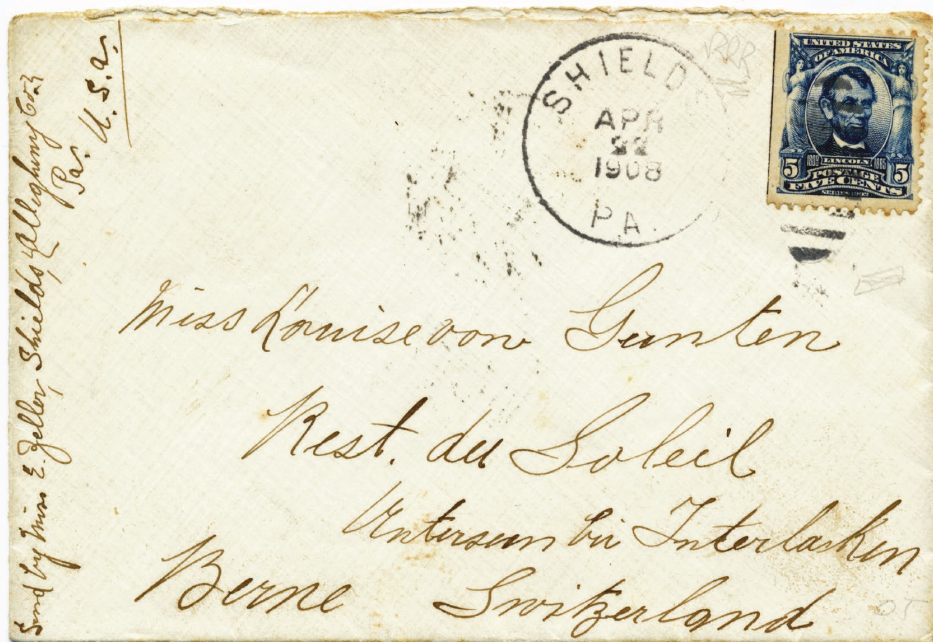 Send by Miss E. Zeller, Shields, Alleghany Co
Pa.
U.S.a.
SHIELDS
APR
22
1908
PA.
UNITED STATES
OF AMERICA
1809 LINCOLN 1865
5 POSTAGE 5
FIVE CENTS
SERIES 1902
Miss Louise von Gunten
Rest. du Soleil
Unterseen bei Interlaken
Berne Switzerland